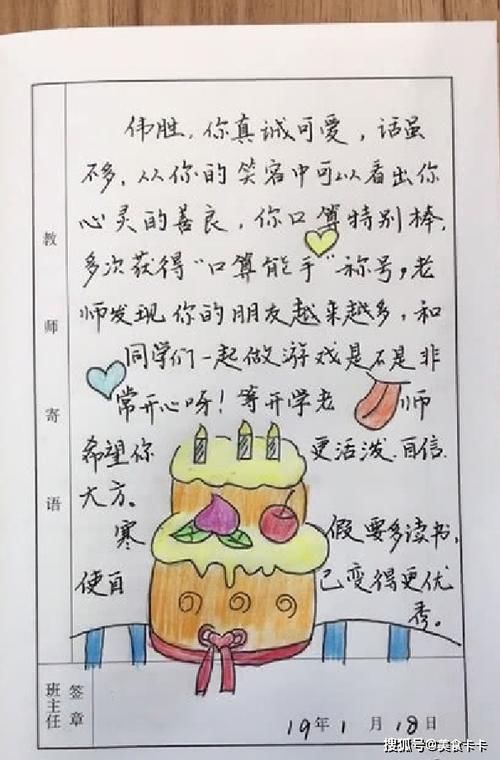 教师寄语
伟胜，你真诚可爱，话虽
不多，从你的笑容中可以看出你
心灵的善良，你口算特别棒，
多次获得“口算能手”称号，老
师发现你的朋友越来越多，和
同学们一起做游戏是不是非
常开心呀！等开学老师
希望你更活泼、自信、
大方。
寒假要多读书，
使自己变得更优
秀。
班主任签章
19年1月18日
搜狐号@美食卡卡